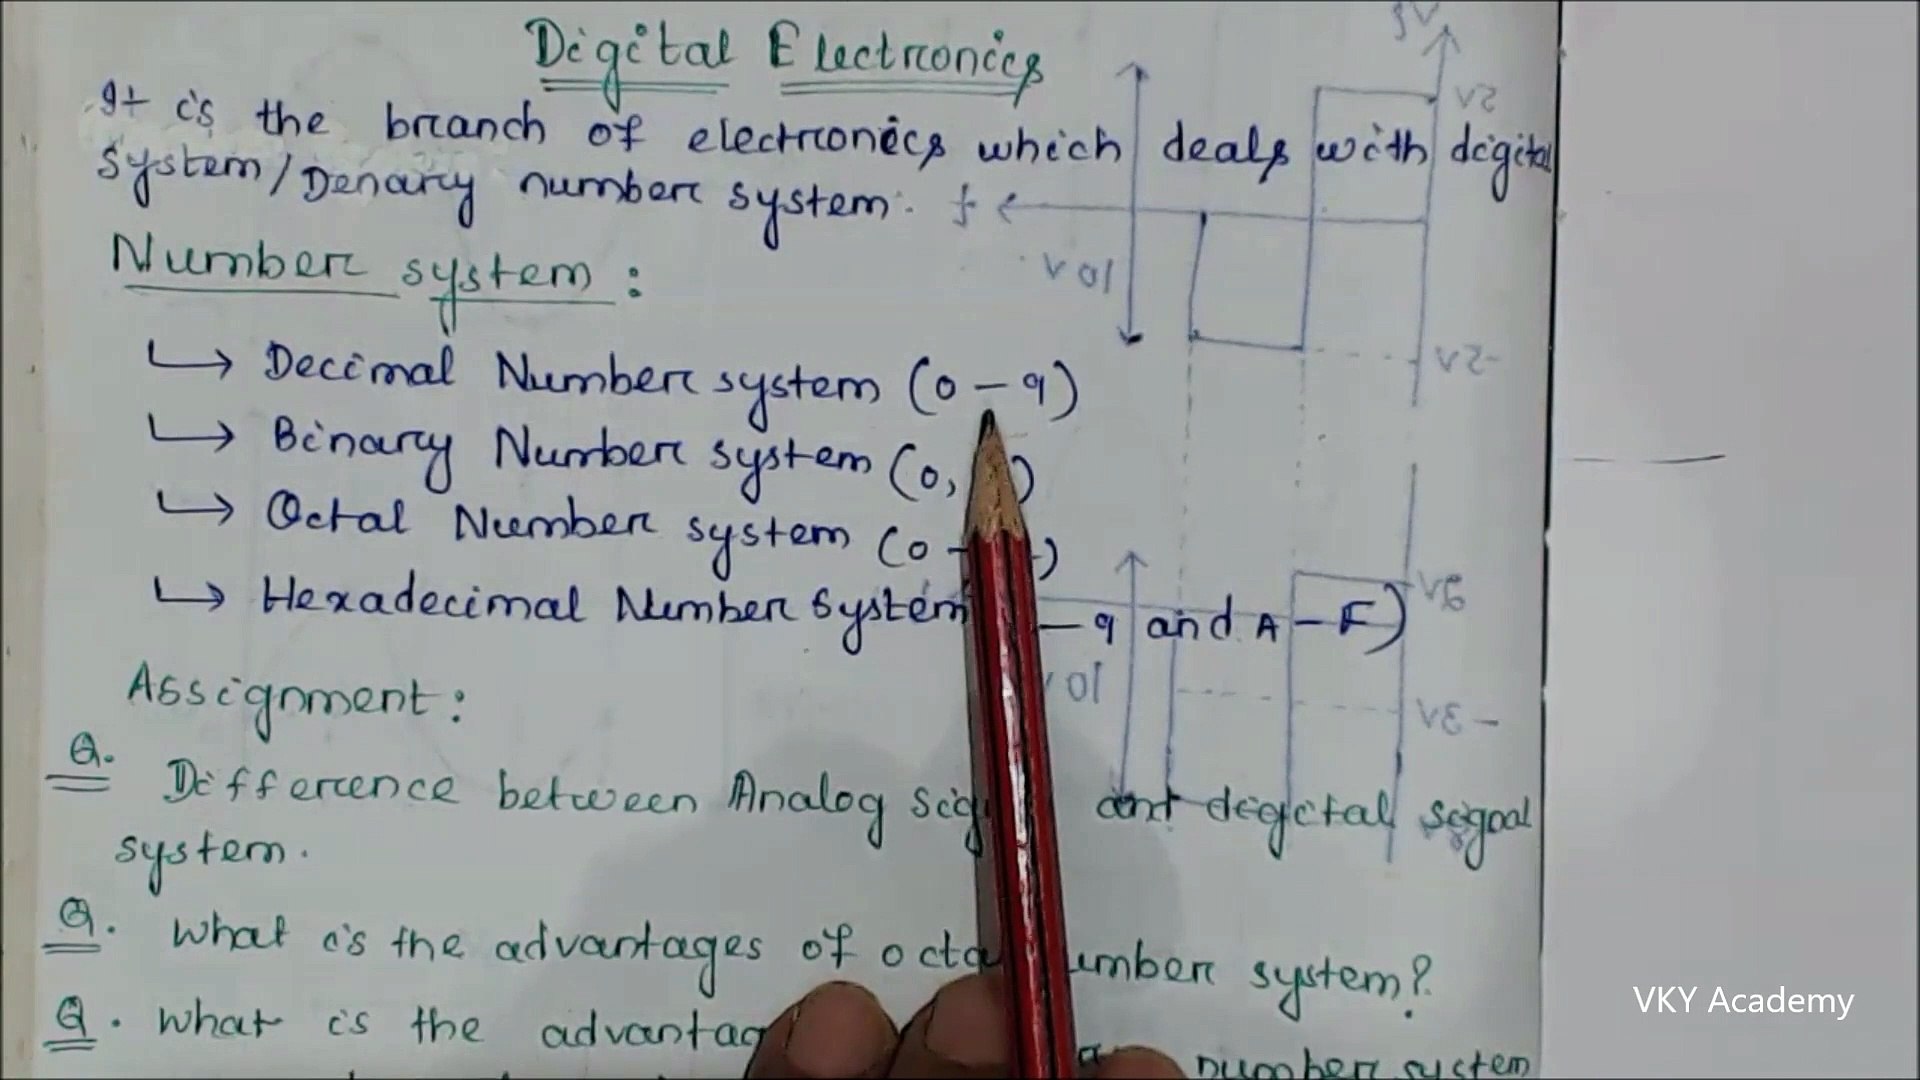 Digital Electronics
It is the branch of electronics which deals with digital
system/Denary number system.
Number system:
Decimal Number system (0 - 9)
Binary Number system (0,
Octal Number system (0 -
Hexadecimal Number system - 9 and A - F)
Assignment:
Q. Difference between Analog and digital signal
system.
Q. What is the advantages of number system?
Q. What is the number system
VKY Academy